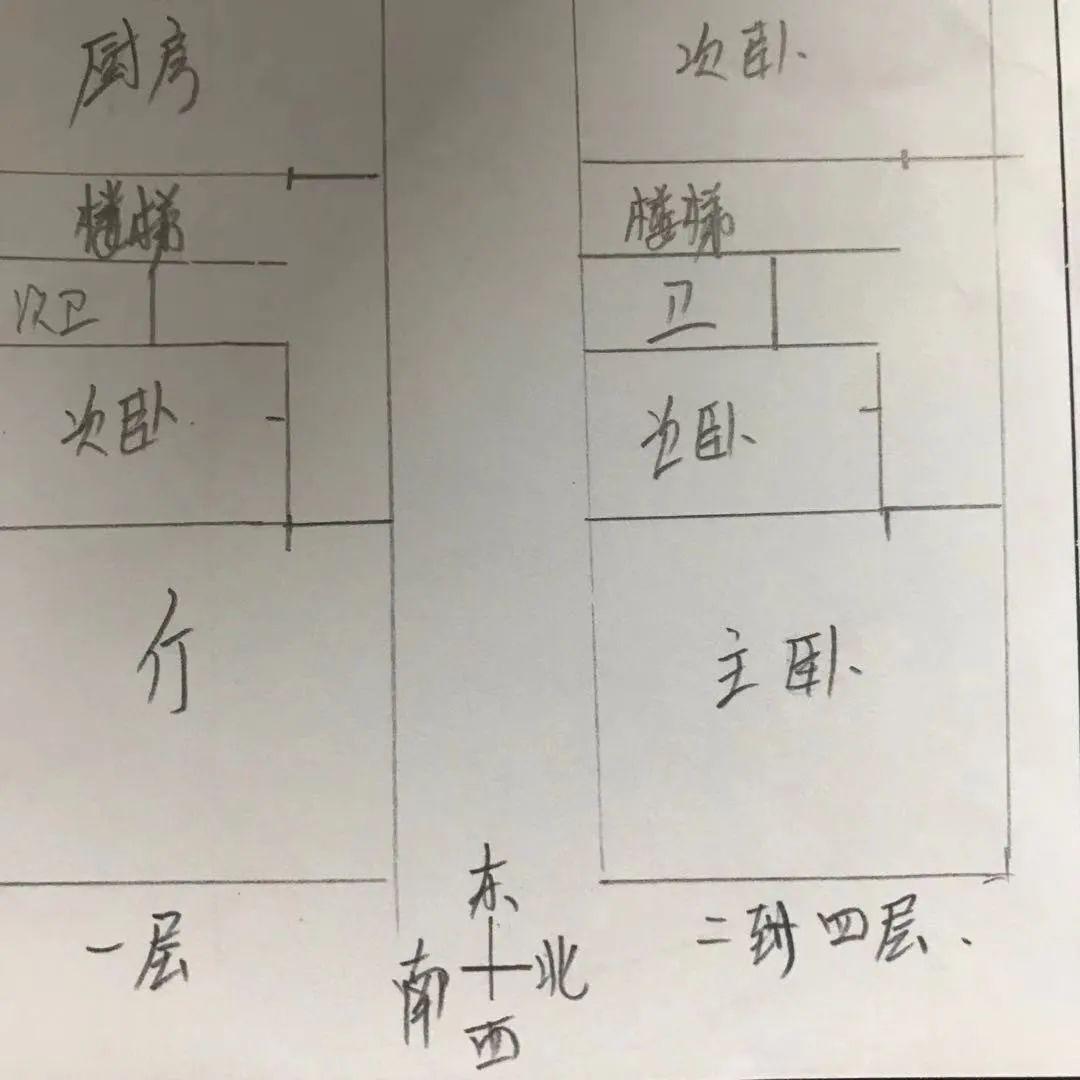 厨房
楼梯
次卫
次卧
厅
一层
次卧
楼梯
卫
次卧
主卧
二到四层.
东
南 北
西